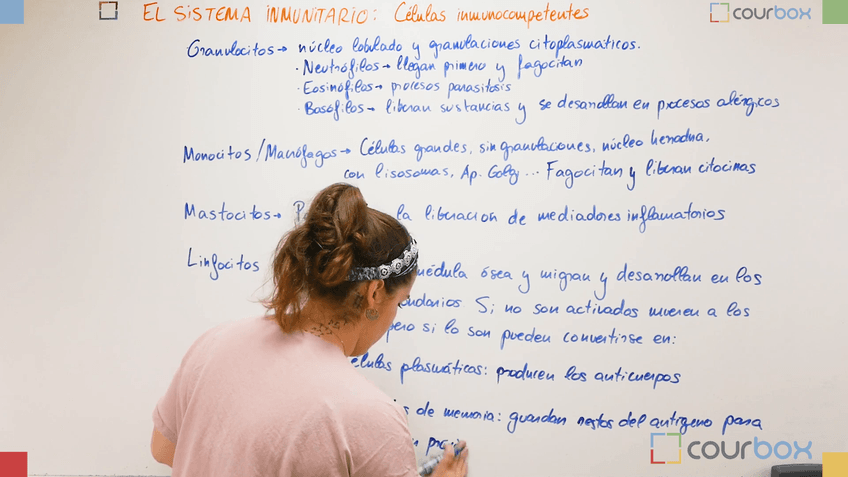 EL SISTEMA INMUNITARIO: Células inmunocompetentes
courbox
Granulocitos → núcleo lobulado y granulaciones citoplasmáticos.
· Neutrófilos → llegan primero y fagocitan
· Eosinófilos → procesos parasitosis
· Basófilos → liberan sustancias y se desarrollan en procesos alérgicos
Monocitos/Macrófagos → Células grandes, sin granulaciones, núcleo herradura,
con lisosomas, Ap. Golgy ... Fagocitan y liberan citocinas
Mastocitos → la liberación de mediadores inflamatorios
Linfocitos médula ósea y migran y desarrollan en los
Si no son activados mueren a los
pero si lo son pueden convertirse en:
células plasmáticas: producen los anticuerpos
de memoria: guardan restos del antígeno para
courbox